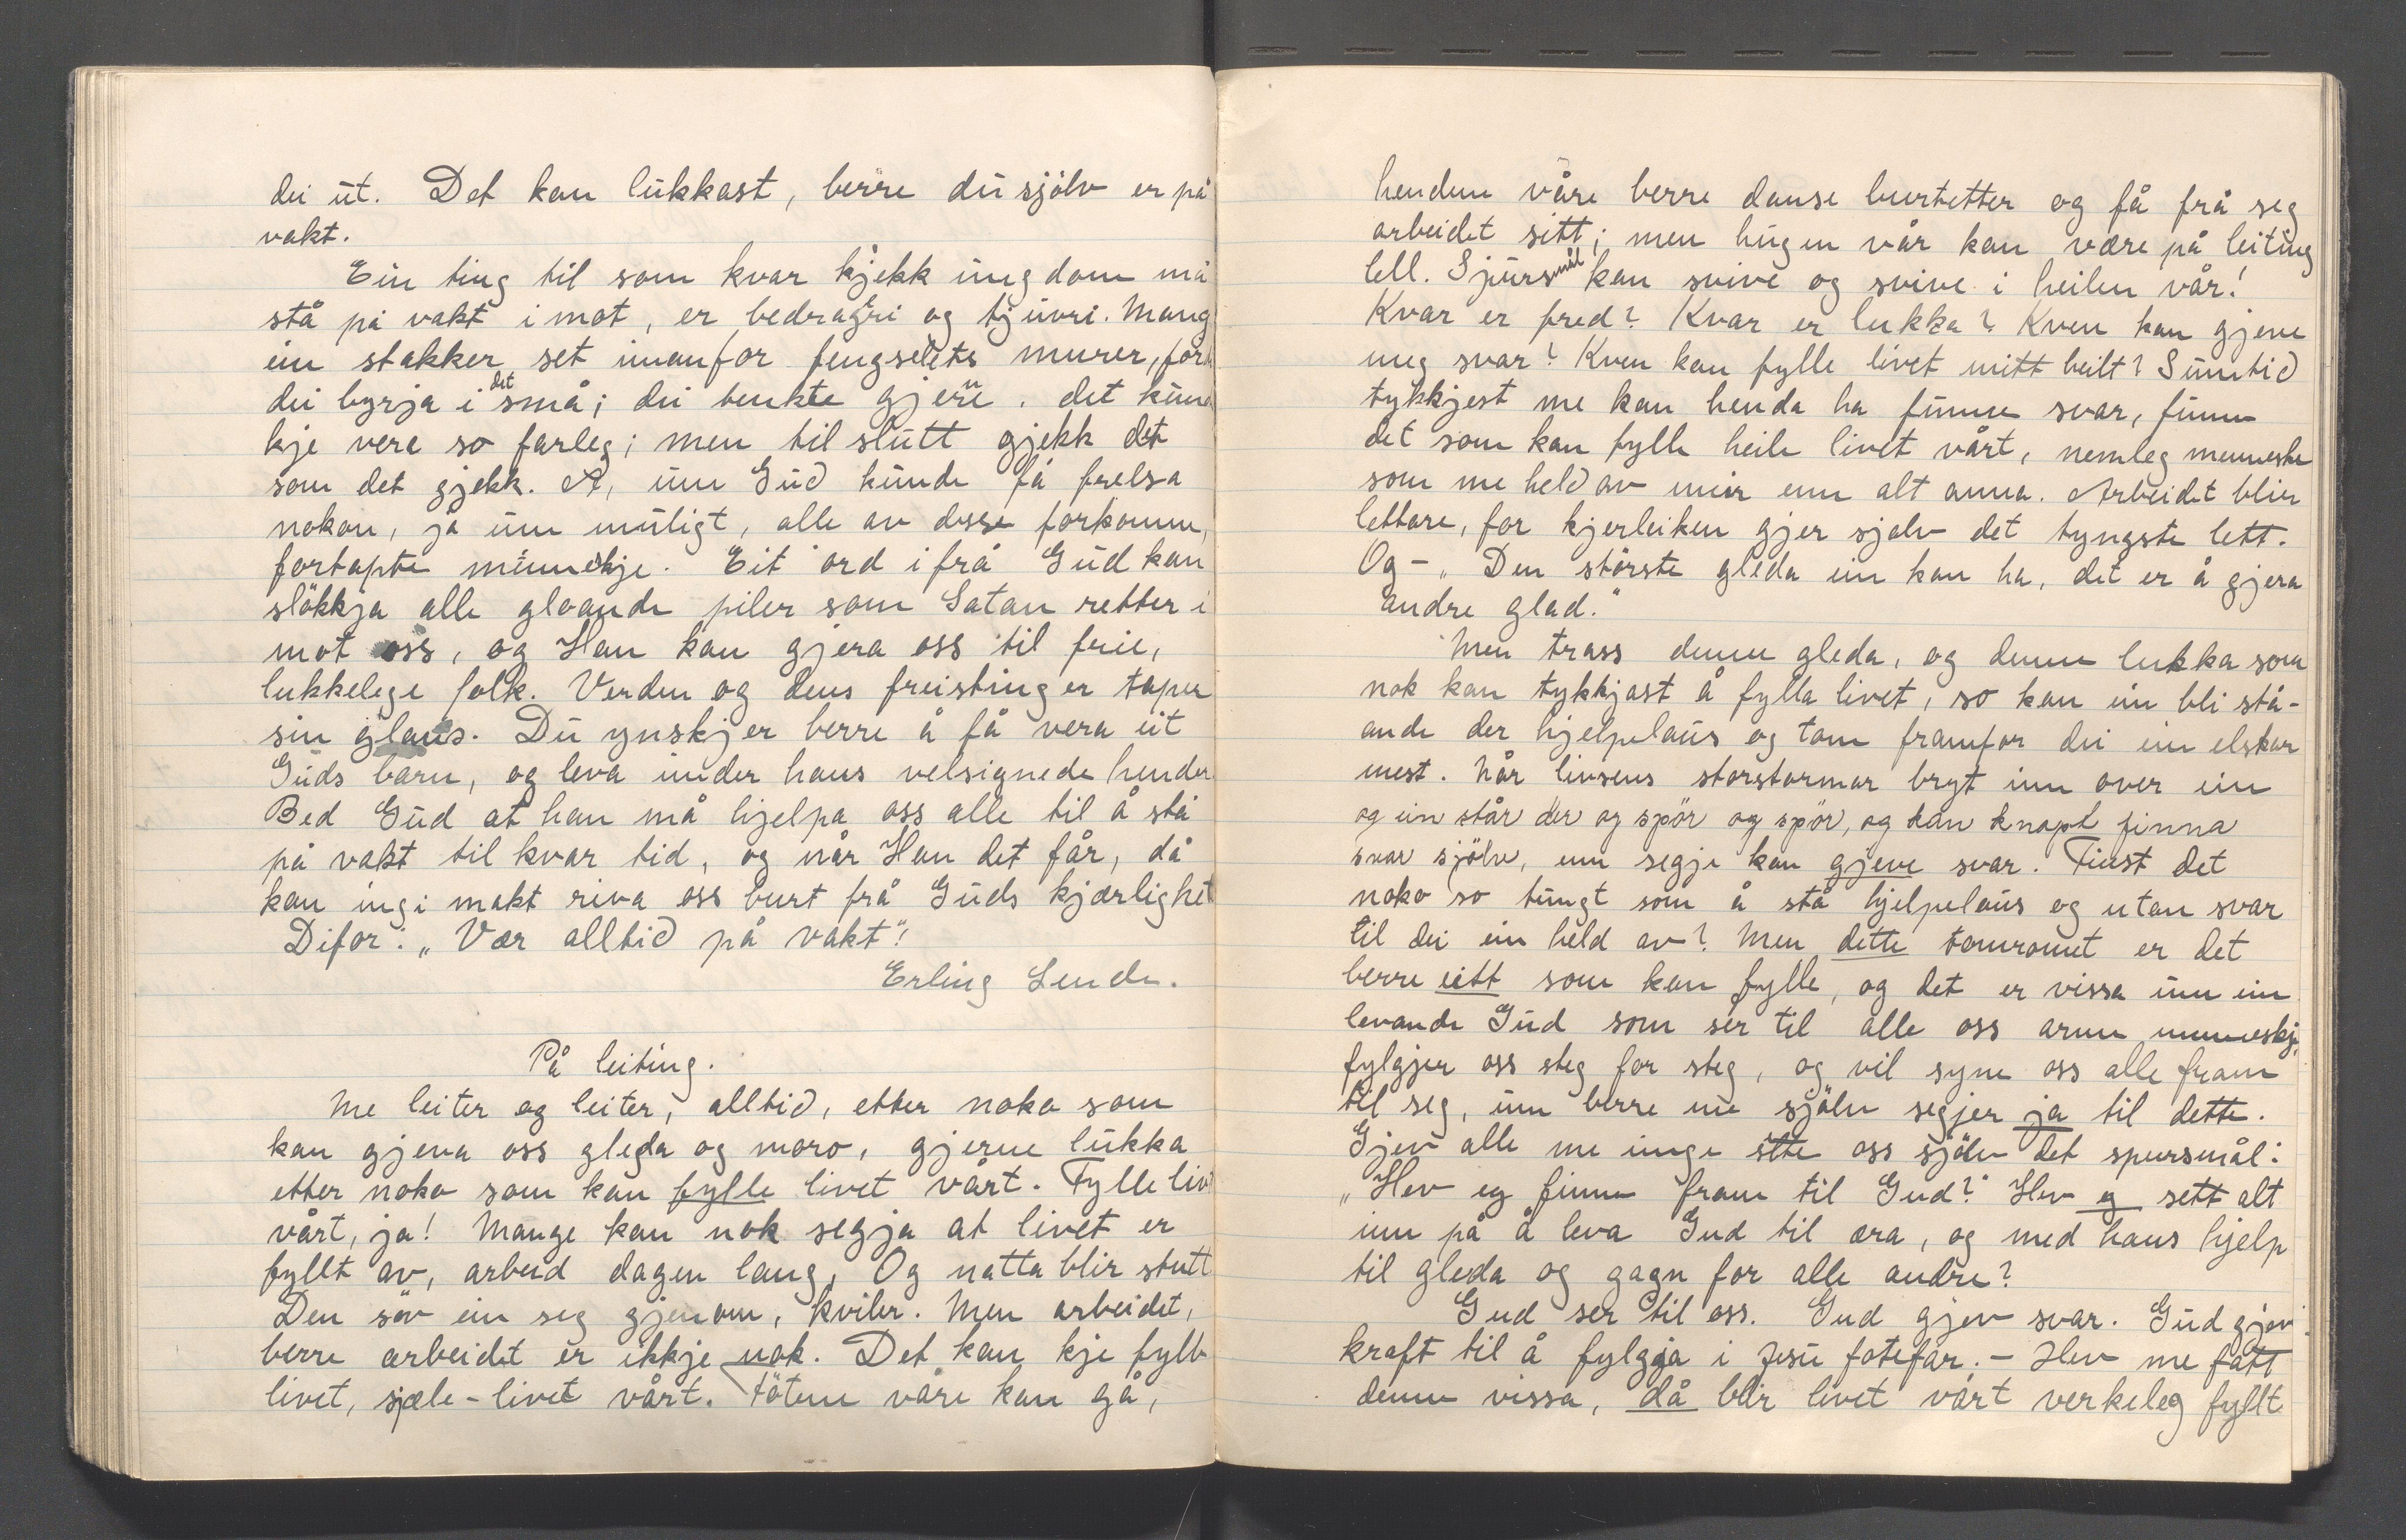 dei ut. Det kan lukkast, berre du sjölv er på
vakt.
Ein ting til som kvar kjekk ungdom må
stå på vakt imot, er bedrageri og tjuvri. Mang
ein stakker set innanfor fengselets murer, fordi
dei byrja i det små; dei tenkte gjerne. det kunde
kje vera so farleg; men til slutt gjekk det
som det gjekk. Å, um Gud kunde få frelsa
nokon, ja um muligt, alle av desse forkomne,
fortapte menneskje. Eit ord ifrå Gud kan
slökkja alle gloande piler som Satan retter i
mot oss, og Han kan gjera oss til frie,
lukkelege folk. Verden og dens freistinger taper
sin glans. Du ynskjer berre å få vera eit
Guds barn, og leva under hans velsignede hender
Bed Gud at han må hjelpa oss alle til å stå
på vakt til kvar tid, og når Han det får, då
kan ingi makt riva oss burt frå Guds kjærlighet
Difor: „Vær alltid på vakt"!
Erling Lende.
På leiting.
Me leiter og leiter, alltid, etter noko som
kan gjeva oss gleda og moro, gjerne lukka
etter noko som kan fylle livet vårt. Fylle livet
vårt, ja! Mange kan nok segja at livet er
fyllt av, arbeid dagen lang, Og natta blir stutt
Den söv ein seg gjenom, kviler. Men arbeidet,
berre arbeidet er ikkje nok. Det kan kje fylle
livet, sjæle-livet vårt. Fötene våre kan gå,
hendene våre berre danse burtetter og få frå seg
arbeidet sitt; men hugen vår kan være på leiting
lell. Spursmål kan svive og svive i heilen vår!
Kvar er fred? Kvar er lukka? Kven kan gjeve
meg svar? Kven kan fylle livet mitt heilt? Sumtid
tykkjest me kan henda ha funne svar, funne
det som kan fylle heile livet vårt, nemleg menneske
som me held av meir enn alt anna. Arbeidet blir
lettare, for kjerleiken gjer sjølv det tyngste lett.
Og – „Den störste gleda ein kan ha, det er å gjera
andre glad."
Men trass denne gleda, og denne lukka som
nok kan tykkjast å fylla livet, so kan ein bli stå-
ande der hjelpelaus og tom framfor dei ein elskar
mest. Når livsens storstormar bryt inn over ein
og ein står der og spör og spör, og kan knapt finna
svar sjölv, enn segje kan gjeve svar. Finst det
noko so tungt som å stå hjelpelaus og utan svar
til dei ein held av? Men dette tomromet er det
berre eitt som kan fylle, og det er vissa um ein
levande Gud som ser til alle oss arme menneskje,
fylgjer oss steg for steg, og vil syne oss alle fram
til seg, um berre me sjölv segjer ja til dette.
Gjev alle me unge sette oss sjölv det spursmål:
„Hev eg funne fram til Gud?" Hev eg sett alt
inn på å leva Gud til æra, og med hans hjelp
til gleda og gagn for alle andre?
Gud ser til oss. Gud gjev svar. Gud gjev
kraft til å fylgja i Jesu fotefar. – Hev me fått
denne vissa, då blir livet vårt verkeleg fyllt